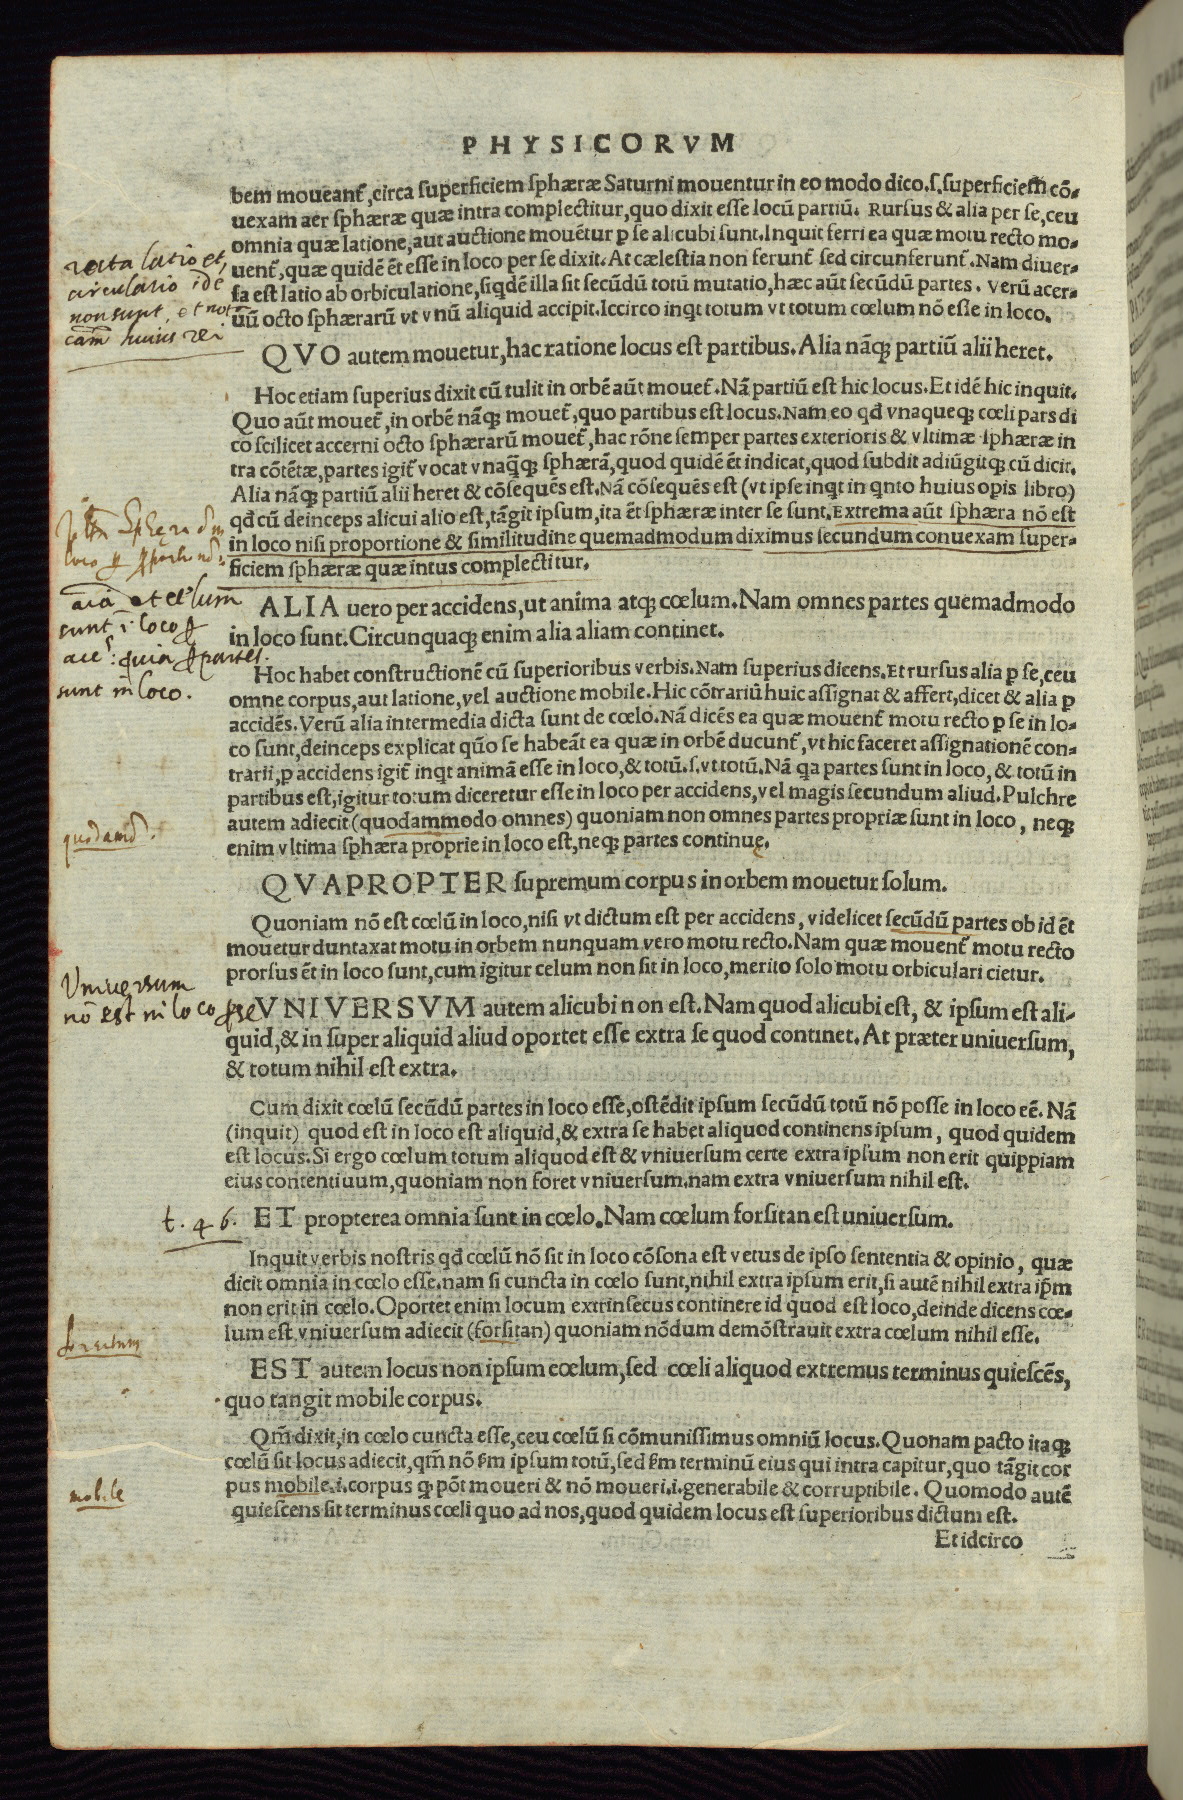 PHYSICORVM
bem moueant᷑, circa superficiem sphæræ Saturni mouentur in eo modo dico.s.superficiem cō-
uexam aer sphæræ quæ intra complectitur, quo dixit esse locū partiū. Rursus & alia per se, ceu
omnia quæ latione, aut auctione mouētur ꝑ se alicubi sunt. Inquit ferri ea quæ motu recto mo-
uent᷑, quæ quidē ēt esse in loco per se dixit. At cælestia non ferunt᷑ sed circunferunt᷑. Nam diuer-
sa est latio ab orbiculatione, siqdē illa sit secūdū totū mutatio, hæc aūt secūdū partes. Verū acer-
uū octo sphærarū vt vnū aliquid accipit. Iccirco inqt totum vt totum cœlum nō esse in loco.
recta latio et
circulatio idē
non sunt, et not
cām huius rei
QVO autem mouetur, hac ratione locus est partibus. Alia nāqꝫ partiū alii heret.
Hoc etiam superius dixit cū tulit in orbē aūt mouet᷑. Nā partiū est hic locus. Et idē hic inquit.
Quo aūt mouet᷑, in orbē nāqꝫ mouet᷑, quo partibus est locus. Nam eo qđ vnaqueqꝫ cœli pars di
co scilicet accerni octo sphærarū mouet᷑, hac rōne semper partes exterioris & vltimæ sphæræ in
tra cōtētæ, partes igit᷑ vocat vnaq̄qꝫ sphærā, quod quidē ēt indicat, quod subdit adiūgitqꝫ cū dicit.
Alia nāqꝫ partiū alii heret & cōsequēs est. Nā cōsequēs est (vt ipse inqt in qnto huius opis libro)
qđ cū deinceps alicui alio est, tāgit ipsum, ita ēt sphæræ inter se sunt. Extrema aūt sphæra nō est
in loco nisi proportione & similitudine quemadmodum diximus secundum conuexam super-
ficiem sphæræ quæ intus complectitur.
ALIA uero per accidens, ut anima atqꝫ cœlum. Nam omnes partes quemadmodo
in loco sunt. Circunquaqꝫ enim alia aliam continet.
aīa et cęlum
sunt ī loco ꝑ
acc͂s: quia ꝑ partes
sunt in loco.
Hoc habet constructionē cū superioribus verbis. Nam superius dicens. Et rursus alia ꝑ se, ceu
omne corpus, aut latione, vel auctione mobile. Hic cōtrariū huic assignat & affert, dicet & alia ꝑ
accidēs. Verū alia intermedia dicta sunt de cœlo. Nā dicēs ea quæ mouent᷑ motu recto ꝑ se in lo-
co sunt, deinceps explicat quō se habeāt ea quæ in orbē ducunt᷑, vt hic faceret assignationē con-
trarii, ꝑ accidens igit᷑ inqt animā esse in loco, & totū.s.vt totū. Nā qa partes sunt in loco, & totū in
partibus est, igitur totum diceretur esse in loco per accidens, vel magis secundum aliud. Pulchre
autem adiecit (quodammodo omnes) quoniam non omnes partes propriæ sunt in loco, neqꝫ
enim vltima sphæra proprie in loco est, neqꝫ partes continuę.
quodamō.
QVAPROPTER supremum corpus in orbem mouetur solum.
Quoniam nō est cœlū in loco, nisi vt dictum est per accidens, videlicet secūdū partes ob id ēt
mouetur duntaxat motu in orbem nunquam vero motu recto. Nam quæ mouent᷑ motu recto
prorsus ēt in loco sunt, cum igitur celum non sit in loco, merito solo motu orbiculari cietur.
Vniuersum
nō est in loco ꝑ se
VNIVERSVM autem alicubi non est. Nam quod alicubi est, & ipsum est ali-
quid, & in super aliquid aliud oportet esse extra se quod continet. At præter uniuersum,
& totum nihil est extra.
Cum dixit cœlū secūdū partes in loco esse, ostēdit ipsum secūdū totū nō posse in loco eē. Nā
(inquit) quod est in loco est aliquid, & extra se habet aliquod continens ipsum, quod quidem
est locus. Si ergo cœlum totum aliquod est & vniuersum certe extra ipsum non erit quippiam
eius contentiuum, quoniam non foret vniuersum. nam extra vniuersum nihil est.
t. 46.
ET propterea omnia sunt in cœlo. Nam cœlum forsitan est uniuersum.
Inquit verbis nostris qđ cœlū nō sit in loco cōsona est vetus de ipso sententia & opinio, quæ
dicit omnia in cœlo esse. nam si cuncta in cœlo sunt, nihil extra ipsum erit, si autē nihil extra ip̄m
non erit in cœlo. Oportet enim locum extrinsecus continere id quod est loco, deinde dicens cœ-
lum est vniuersum adiecit (forsitan) quoniam nōdum demōstrauit extra cœlum nihil esse.
EST autem locus non ipsum cœlum, sed cœli aliquod extremus terminus quiescēs,
quo tangit mobile corpus.
Qm̄ dixit, in cœlo cuncta esse, ceu cœlū si cōmunissimus omniū locus. Quonam pacto itaqꝫ
cœlū sit locus adiecit, qm̄ nō fm ipsum totū, sed fm terminū eius qui intra capitur, quo tāgit cor
pus mobile.i.corpus ꝙ pōt moueri & nō moueri.i.generabile & corruptibile. Quomodo autē
quiescens sit terminus cœli quo ad nos, quod quidem locus est superioribus dictum est.
mobile
Et idcirco